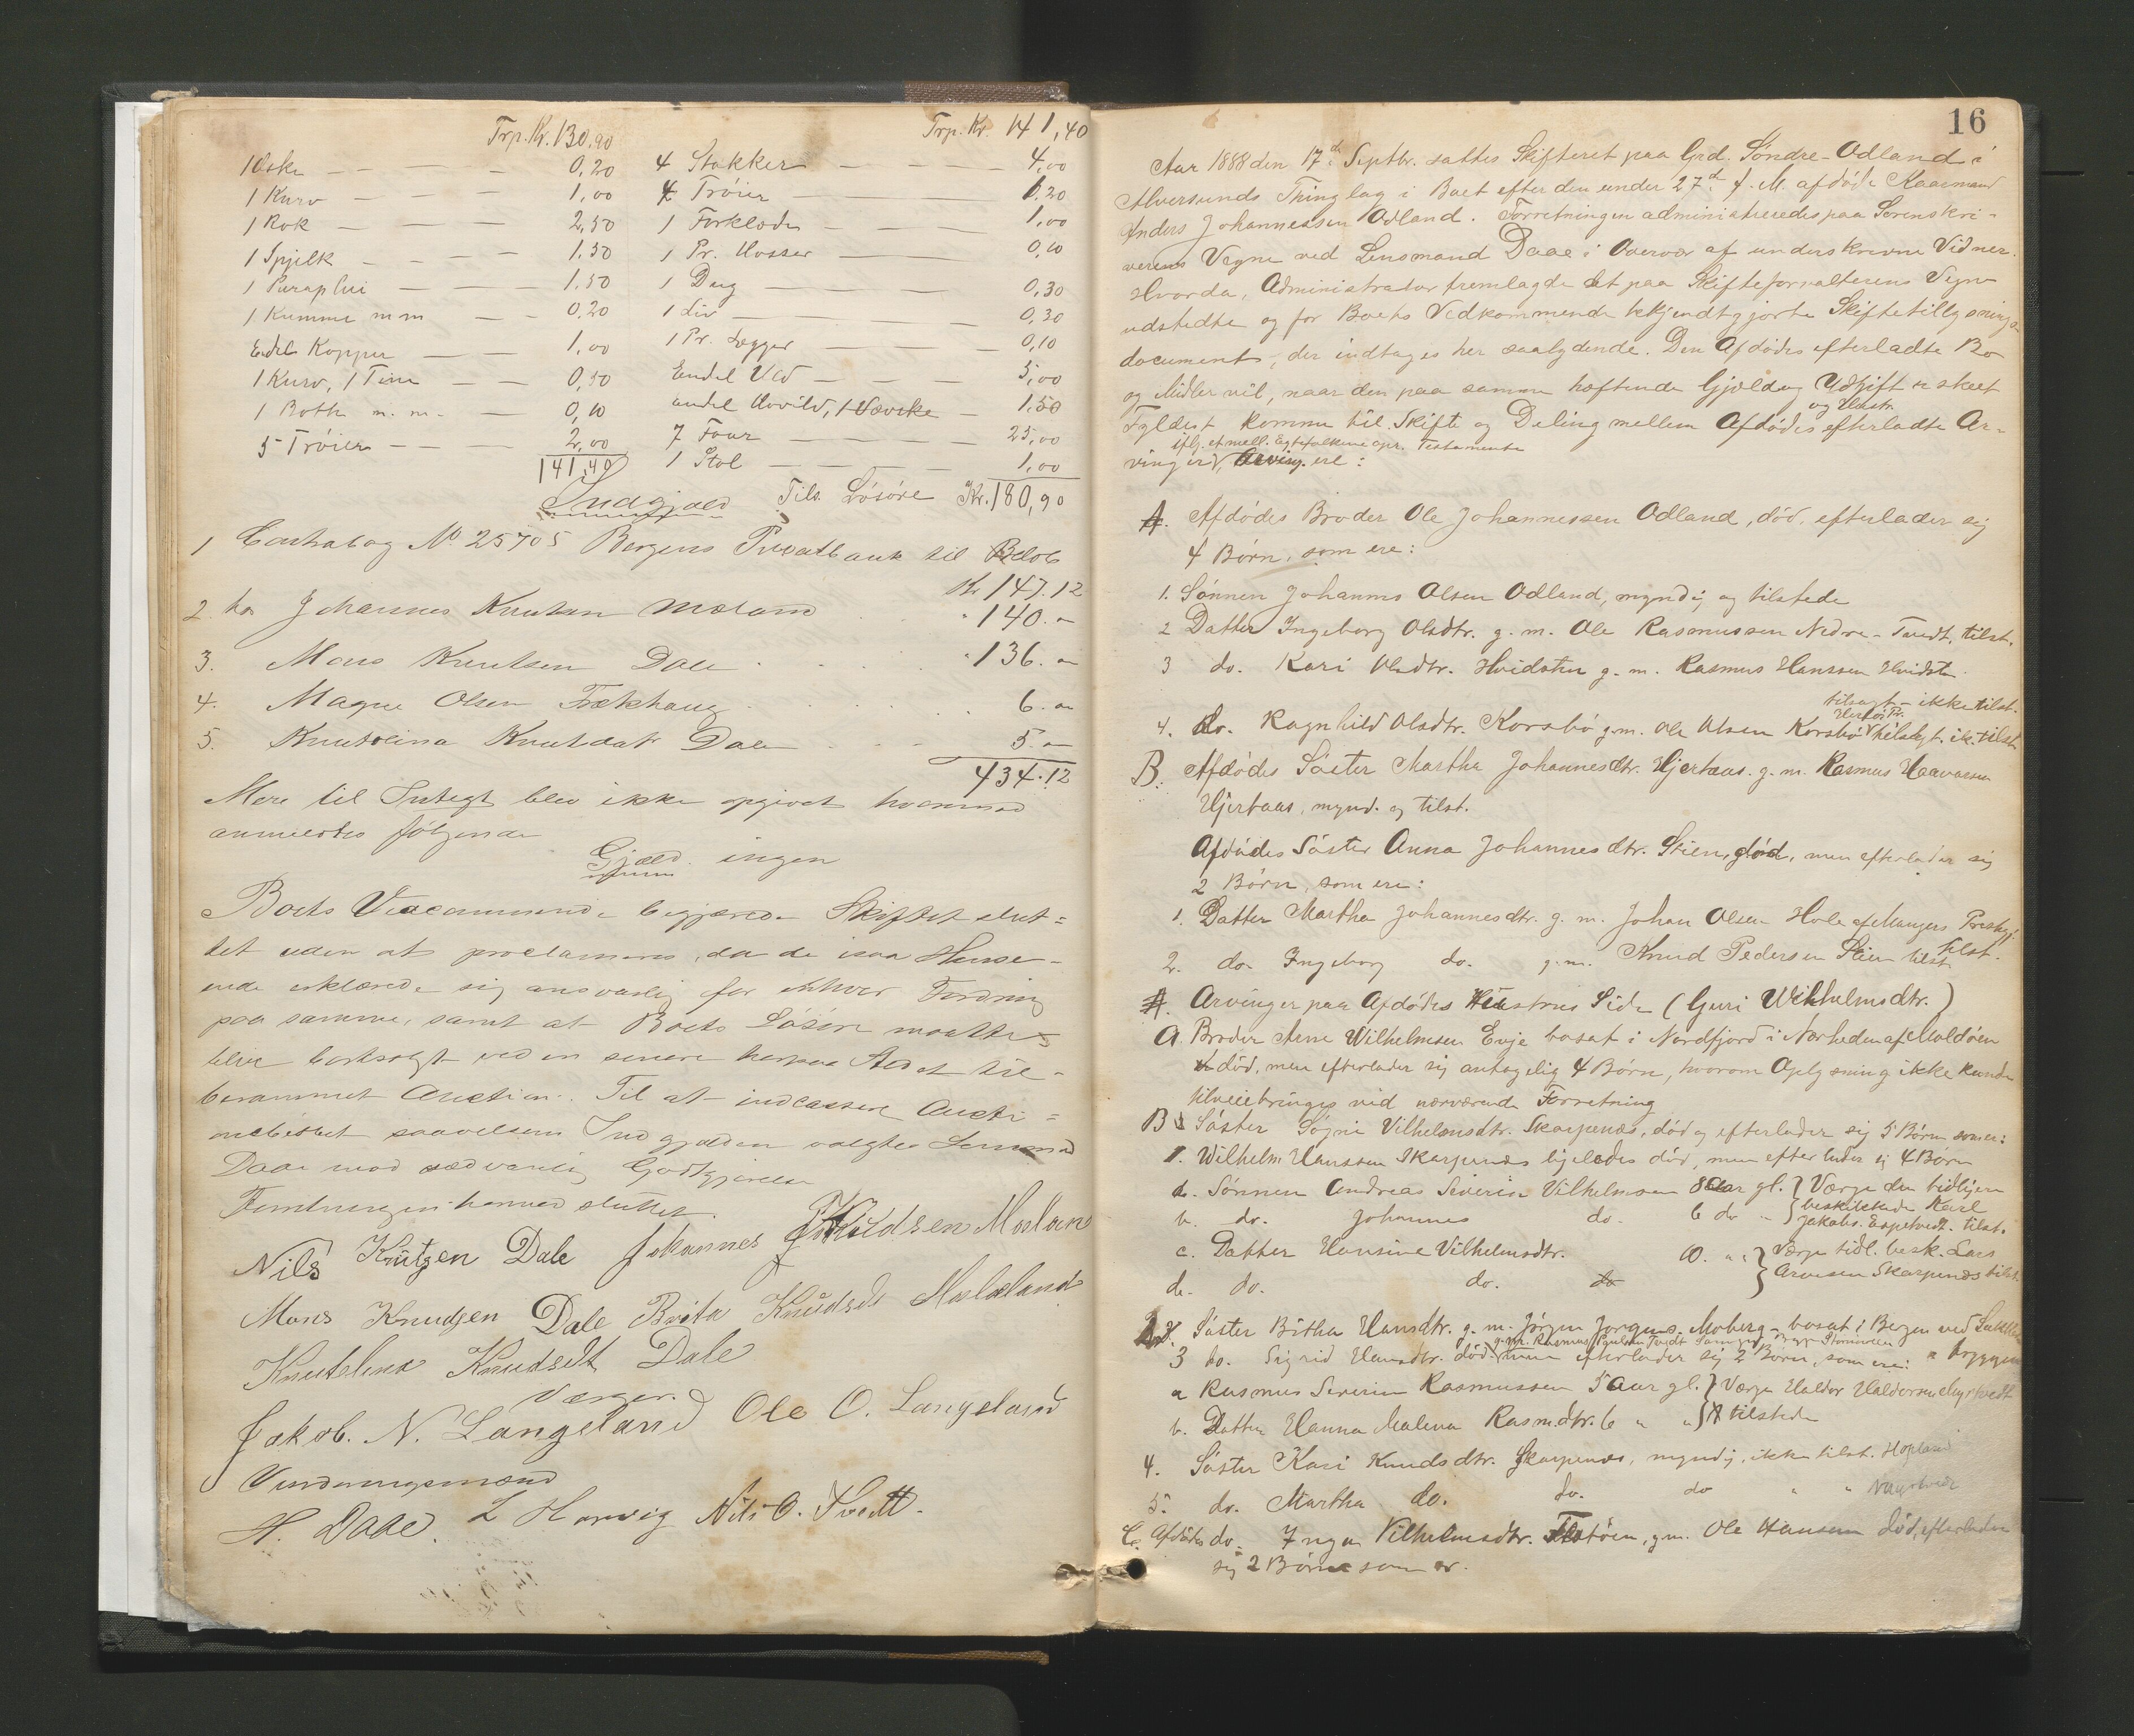 Trp. Kr. 130,90
1 Öske — — — 0,20
1 Kurv — — — 1,00
1 Rok — — — 2,50
1 Spjelk — — — 1,50
1 Paraplui — — — 1,50
1 Kumme m m — — 0,20
Endel Kopper — — 1,00
1 Kurv, 1 Tine — — 0,50
1 Both m. m. — 0,10
5 Trøier — — 2,00
141,40
Trp. Kr. 141,40
4 Stakker — — — 4,00
4 Trøier — — — 1,20
1 Forklæde — — — 1,00
1 Pr. Hosser — — — 0,10
1 Dug — — — 0,30
1 Liv — — — 0,30
1 Pr. Lægger — — — 0,10
Endel Ved — — — 5,00
andel — 1,50
7 Faar — — — 25,00
1 Stol — — — 1,00
Tils. Løsøre Kr. 180,90
Indgjæld
1 Contrabog No 25705 Bergens Privatbank til Beløb
Kr 147.12
2. hos Johannes Knutsen Mæland " 140. "
3. Mons Knutsen Dale " 136. "
4. Magne Olsen Fækhaug 6. "
5. Knutolina Knutsdatr Dale 5. "
434.12
Mere til Indtægt blev ikke opgivet hvormed
anmeldtes følgende
Gjæld. ingen
Boets Vedkommende begjærede Skiftet slut-
tet uden at proclameres, da de i saa Hense-
ende erklærede sig ansvarlig for enhver Fordring
paa samme, samt at Boets Løsøre maatte
blive bortsolgt ved en senere herpaa Stedet til-
berammet Auction. Til at indcassere Aucti-
onsbeløbet saavelsom Indgjælden valgtes Lensmand
Daae mod sædvanlig Godtgjørelse
Forretningen hermed sluttet.
Nils Knützen Dale Johannes Mæland
Mons Knudsen Dale Brita Knudsdt Mæland
Knutolina Knudsdt Dale
Værger.
Jakob. N. Langeland Ole O. Langeland
Vurderingsmænd
H. Daae. L Horvig Nils O. Tvedt.
16
Aar 1888 den 17de Septbr. sattes Skifteret paa Grd. Søndre-Odland i
Alversunds Thinglag i Boet efter den under 27de f. M. afdøde Kaarmand
Anders Johannessen Odland. Forretningen administreredes paa Sorenskri-
verens Vegne ved Lensmand Daae i Overvær af underskrevne Vidner.
Hvorda, Administrator fremlagde et paa Skifteforvalterens Vegne
udstedte og for Boets Vedkommende bekjendtgjorte Skiftetillysnings
document, der indtages her saalydende. Den Afdødes efterladte Bo
og Midler vil, naar den paa samme heftende Gjæld og Udgift er skeet
Fyldest komme til Skifte og Deling mellem Afdødes og Hustr. efterladte Ar-
iflg. et mell. Egtefolkene opr. Testamente
vinger, ere:
A. Afdødes Broder Ole Johannessen Odland, død, efterlader sig
4 Børn, som ere:
1. Sønnen Johannes Olsen Odland, myndig og tilstede
2 Datter Ingeborg Olsdtr. g. m. Ole Rasmussen Nedre-Tvedt, tilst.
3 do. Kari Olsdtr. Hvidsten g. m. Rasmus Hanssen Hvidsten
tilsagt - ikke tilst.
4. do. Ragnhild Olsdtr. Korsbø g. m. Ole Olsen Korsbø Herlø Pr. tilsagt. ik. tilst.
B. Afdødes Søster Martha Johannesdtr. Hjertaas. g. m. Rasmus Haavarsen
Hjertaas, mynd. og tilst.
Afdødes Søster Anna Johannesdtr. Steien, død, men efterlader sig
2 Børn, som ere:
1. Datter Martha Johannesdtr. g. m. Johan Olsen Hole af Mangers Præstgj.
tilst.
2. do. Ingeborg do. g. m. Knud Pedersen Steien tilst
A. Arvinger paa Afdødes Hustrues Side (Guri Wilhelmsdtr.)
a. Broder Arne Wilhelmsen Evje bosat i Nordfjord i Nærheden af Moldøen
død, men efterlader sig antagelig 4 Børn, hvorom Oplysning ikke kunde
tilveiebringes ved nærværende Forretning
B Søster Søgni Vilhelmsdtr. Skarpenæs, død og efterlader sig 5 Børn som er:
1. Wilhelm Hanssen Skarpenæs ligeledes død, men efterlader sig 4 Børn
a. Sønnen Andreas Severin Vilhelmsen 8 Aar gl. } Værge den tidligere
b. do. Johannes do. 6 do " } beskikkede Karl
Jakobs. Espetvedt. tilst.
c. Datter Hansine Vilhelmsdtr. 10. " " } Værge tidl. besk. Lars
d. do. do. do } Arnesen Skarpenæs tilst.
2. Søster Britha Hansdtr. g. m. Jørgen Jørgens. Moberg - bosat i Bergen ved
g. m. Rasmus Paulsen Tvedt
3 do. Sigrid Hansdtr. død. men efterlader sig 2 Børn, som ere:
a Rasmus Severin Rasmussen 5 Aar gl. } Værge Haldor Haldorsen Myrtvedt
b. Datter Hanna Malena Rasm.dtr. 6 " " } tilstede
4. Søster Kari Knudsdtr. Skarpenæs, myndig, ikke tilst. Hopland
5. do. Martha do. do. do " "
C. Afdødes do. Inga Vilhelmsdtr. Flatøen, g. m. Ole Hansen død, efterlader
sig 2 Børn som er.